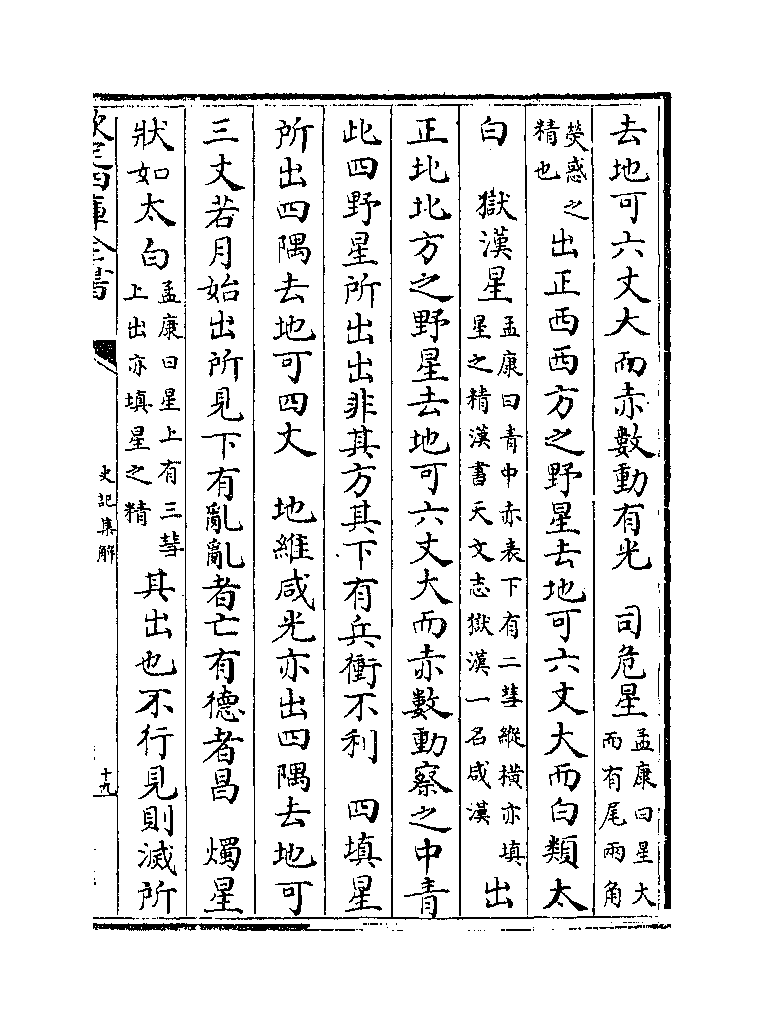 去地可六丈大而赤數動有光　司危星孟康曰星大而有尾兩角
熒惑之精也出正西西方之野星去地可六丈大而白類太
白　獄漢星孟康曰青中赤表下有二彗縱橫亦填星之精漢書天文志獄漢一名咸漢出
正北北方之野星去地可六丈大而赤數動察之中青
此四野星所出出非其方其下有兵衝不利　四填星
所出四隅去地可四丈　地維咸光亦出四隅去地可
三丈若月始出所見下有亂亂者亡有德者昌　燭星
狀如太白孟康曰星上有三彗上出亦填星之精其出也不行見則滅所
欽定四庫全書　史記集解　十九